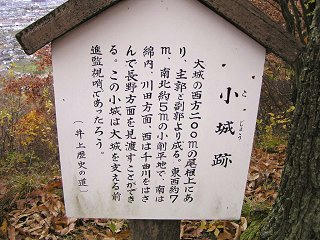 小城跡
こじょう
大城の西方二〇〇mの尾根上にあ
り、主郭と副郭より成る。東西約7
m、南北約5mの小削平地で、南は
綿内、川田方面、西は千曲川をはさ
んで長野方面を見渡すことができ
る。この小城は大城を支える前
進監視哨であったろう。
(井上歴史の道)